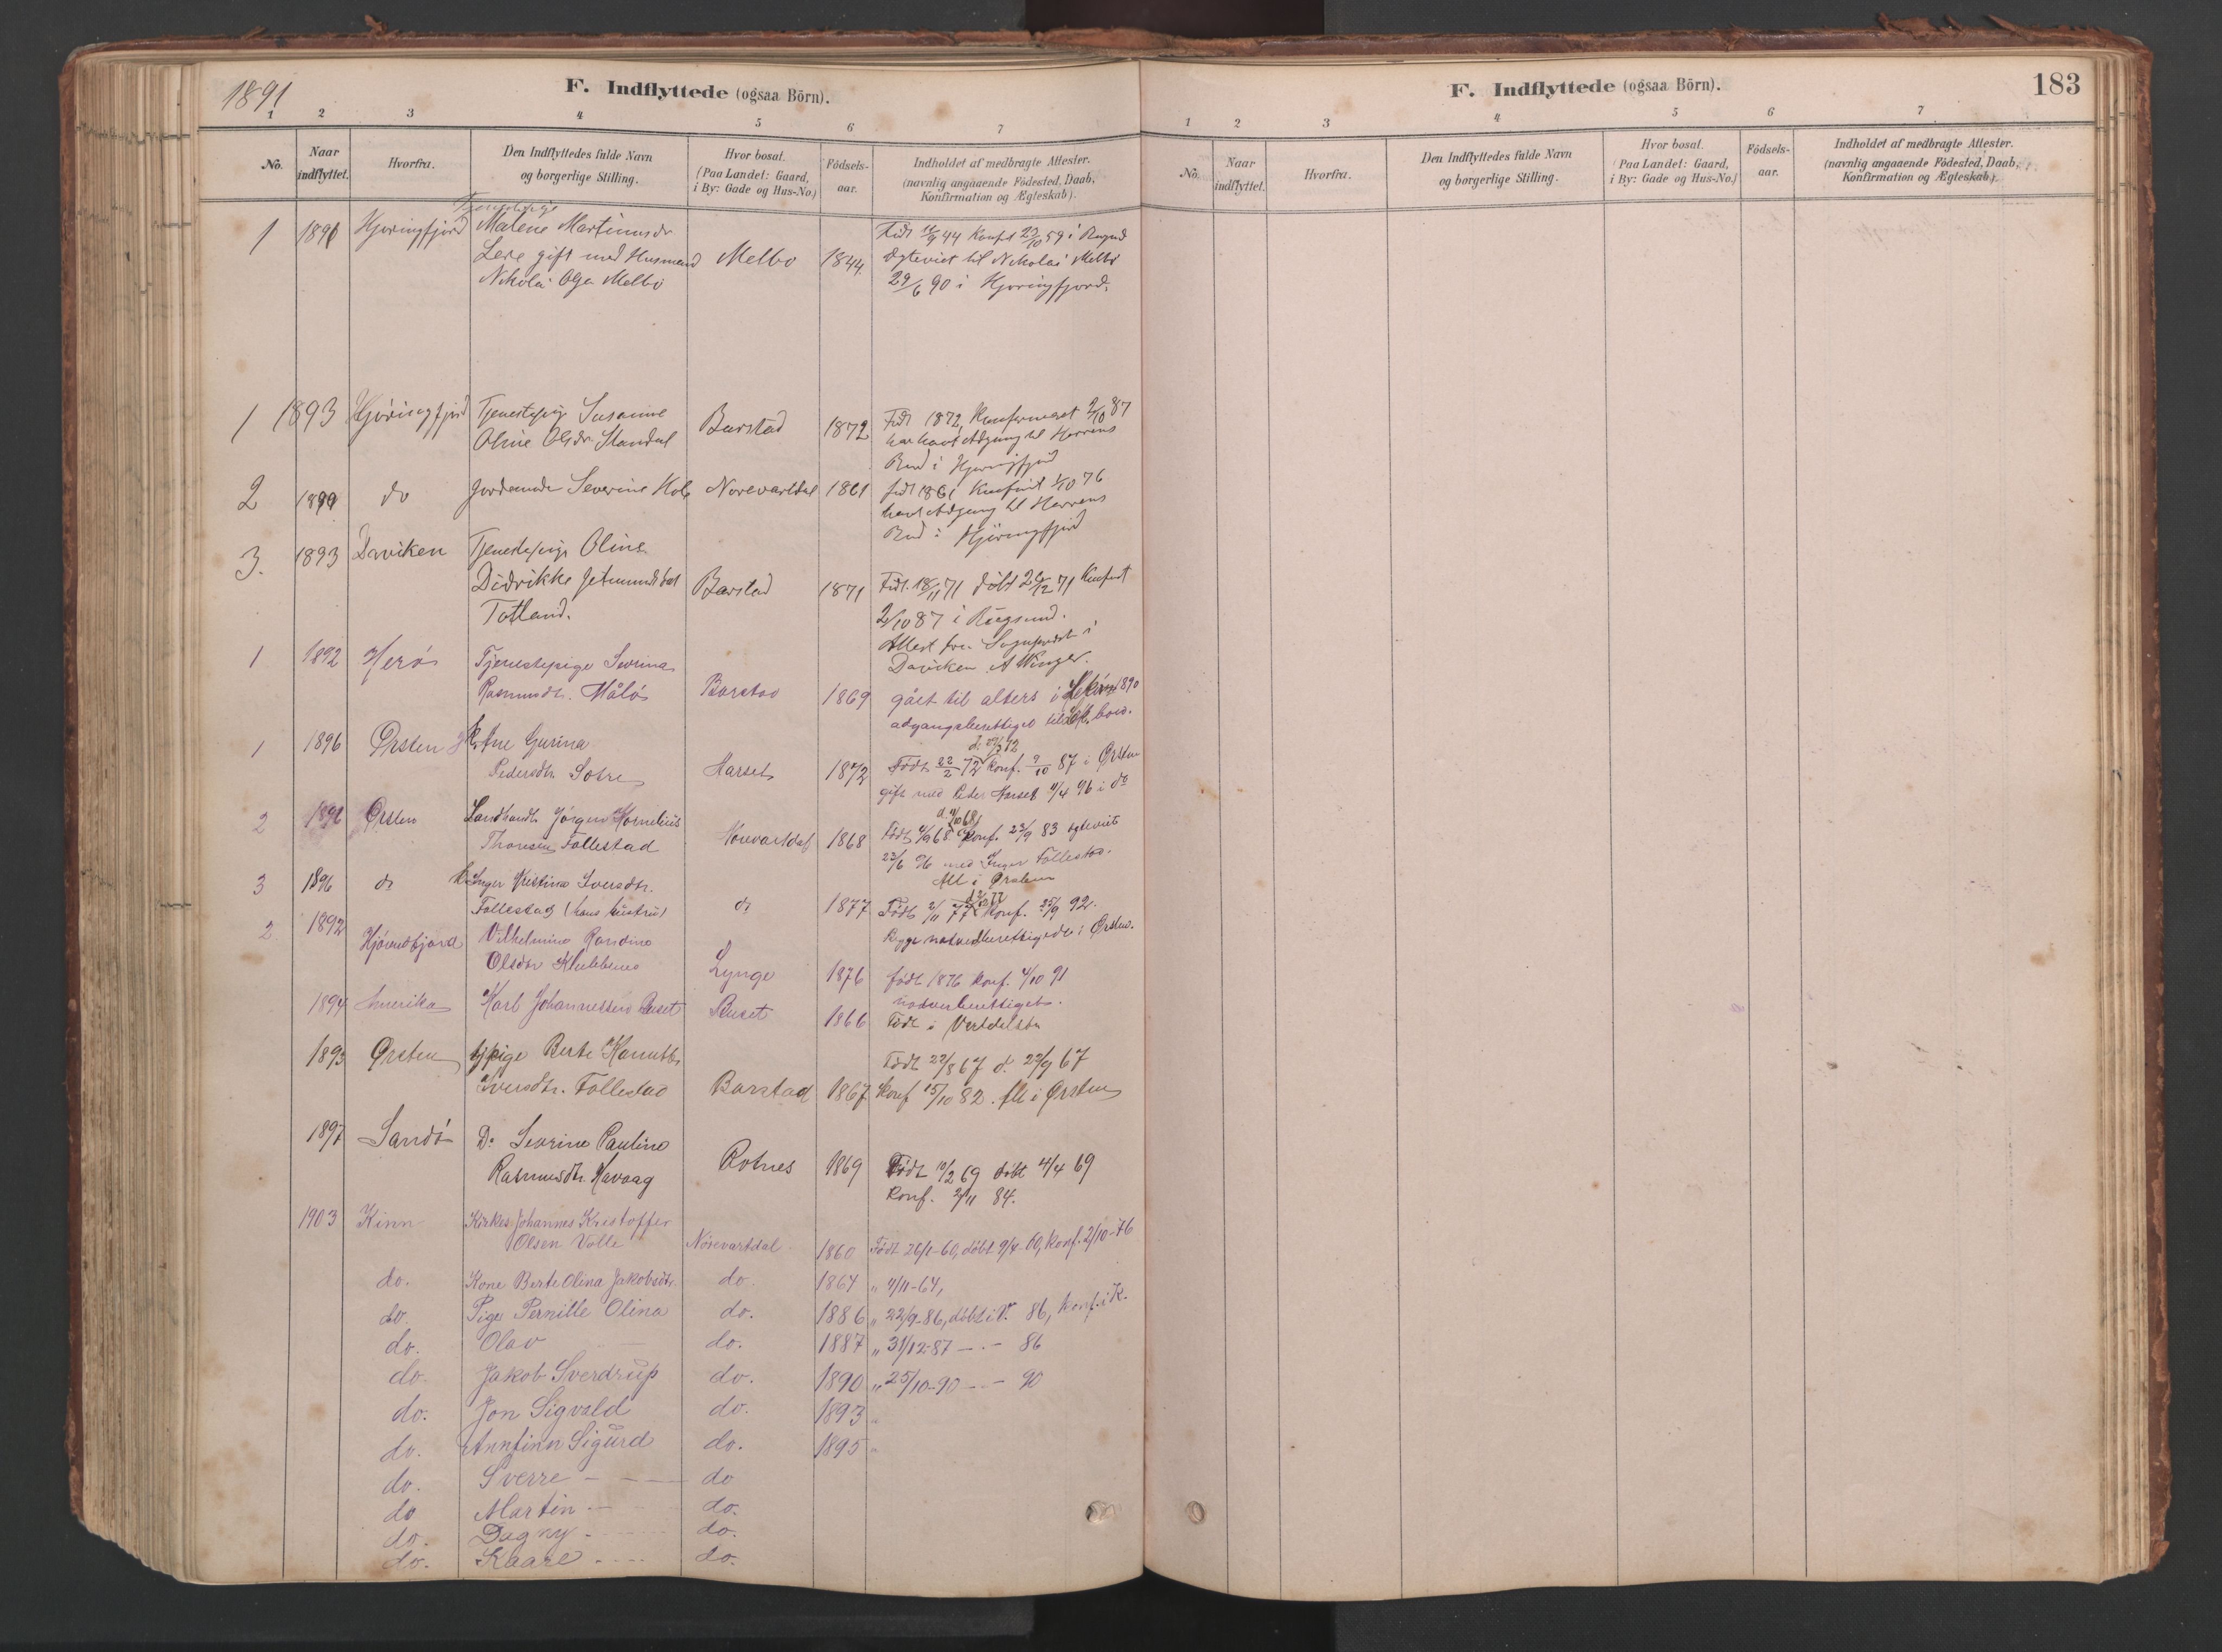 1891
F. Indflyttede (ogsaa Börn).
1 2 3 4 5 6 7
No. Naar indflyttet. Hvorfra. Den Indflyttedes fulde Navn og borgerlige Stilling. Hvor bosat. (Paa Landet: Gaard, i By: Gade og Hus-No.) Födsels-aar. Indholdet af medbragte Attester. (navnlig angaaende Födested, Daab, Konfirmation og Ægteskab).
1 1891 Malene Martinusdr
gift med Husmand Melbo 1844
Nikolai Melbö 29/6 90 i
1 1893 Tjenestepige Susanne Barstad 1872 Födt 1872, Konfirmeret 2/10 87
Oline Olsdr. Standal har havt Adgang til Herrens
Bord i
2 do Severine Norevartdal 1861 födt 1861 1/10 76
havt Adgang til Herrens
Bord i
3. 1893 Daviken Tjenestepige Oline
Didrikke Barstad 1871 Födt 18/11 71 döbt 71
Totland. 2/10 87 i Rugsund.
Attest fra Sognepræst i
Daviken A Winger.
1 1892 Herö Tjenestepige Sevrina
Rasmusdtr. Målö Barstad 1869 gået til alters i 1890
adgangsberettiget til bord.
1 1896 Ørsten Ane Gurina
Pedersdtr. Harset 1872 Födt 22/2 72 konf. 87 i Ørsten
gift med Peder Harset 96 i do
2 1896 Ørsten Landhandl. Jörgen Kornelius
Thoresen Follestad 1868 Födt 68 konf. 23/9 83 ægteviet
23/6 96 med Inger Follestad.
Alt i Ørsten
3 1896 do Inger Kristine Iversdtr.
Follestad (hans hustru) do 1877 Födt 2/11 77 konf. 25/9 92.
Begge nadverberettigede i Ørsten.
2 1892 Hjörundfjord Vilhelmine Randine
Olsdtr Klubbenes Lynge 1876 födt 1876 konf. 4/10 91
nadverberettiget.
1894 Amerika Karl Johannessen Buset Buset 1866 Födt i
1893 Ørsten tjpige Berte Födt 22/8 67 d. 22/9 67
Iversdtr. Follestad Barstad 1867 konf 15/10 82. Alt i Ørsten
1897 Sandö Do Sevrine Pauline
Rasmusdtr. Havaag Rotnes 1869 Födt 10/2 69 döbt 4/4 69
konf. 2/11 84.
1903 Kinn Kirkes. Johannes Kristoffer
Olsen Valle Nörevartdal 1860 Födt 26/1-60, döbt 9/4-60, Konf. 2/10-76
do. Kone Berte Olina Jakobsdtr. do. 1864 „ 4/11-64,
do. Pige Pernille Olina do. 1886 „ 22/9-86, döbt i V. 86, konf. i K.
do. Olav do. 1887 „ 31/12-87 — - — 86
do. Jakob Sverdrup do. 1890 „ 25/10-90 — - — 90
do. Jon Sigvald do. 1893 „
do. Annfinn Sigurd do. 1895 „
do. Sverre — do
do Martin — do.
do. Dagny - do.
do. Kaare do.
183
F. Indflyttede (ogsaa Börn).
1 2 3 4 5 6 7
No. Naar indflyttet. Hvorfra. Den Indflyttedes fulde Navn og borgerlige Stilling. Hvor bosat. (Paa Landet: Gaard, i By: Gade og Hus-No.) Födsels-aar. Indholdet af medbragte Attester. (navnlig angaaende Födested, Daab, Konfirmation og Ægteskab).